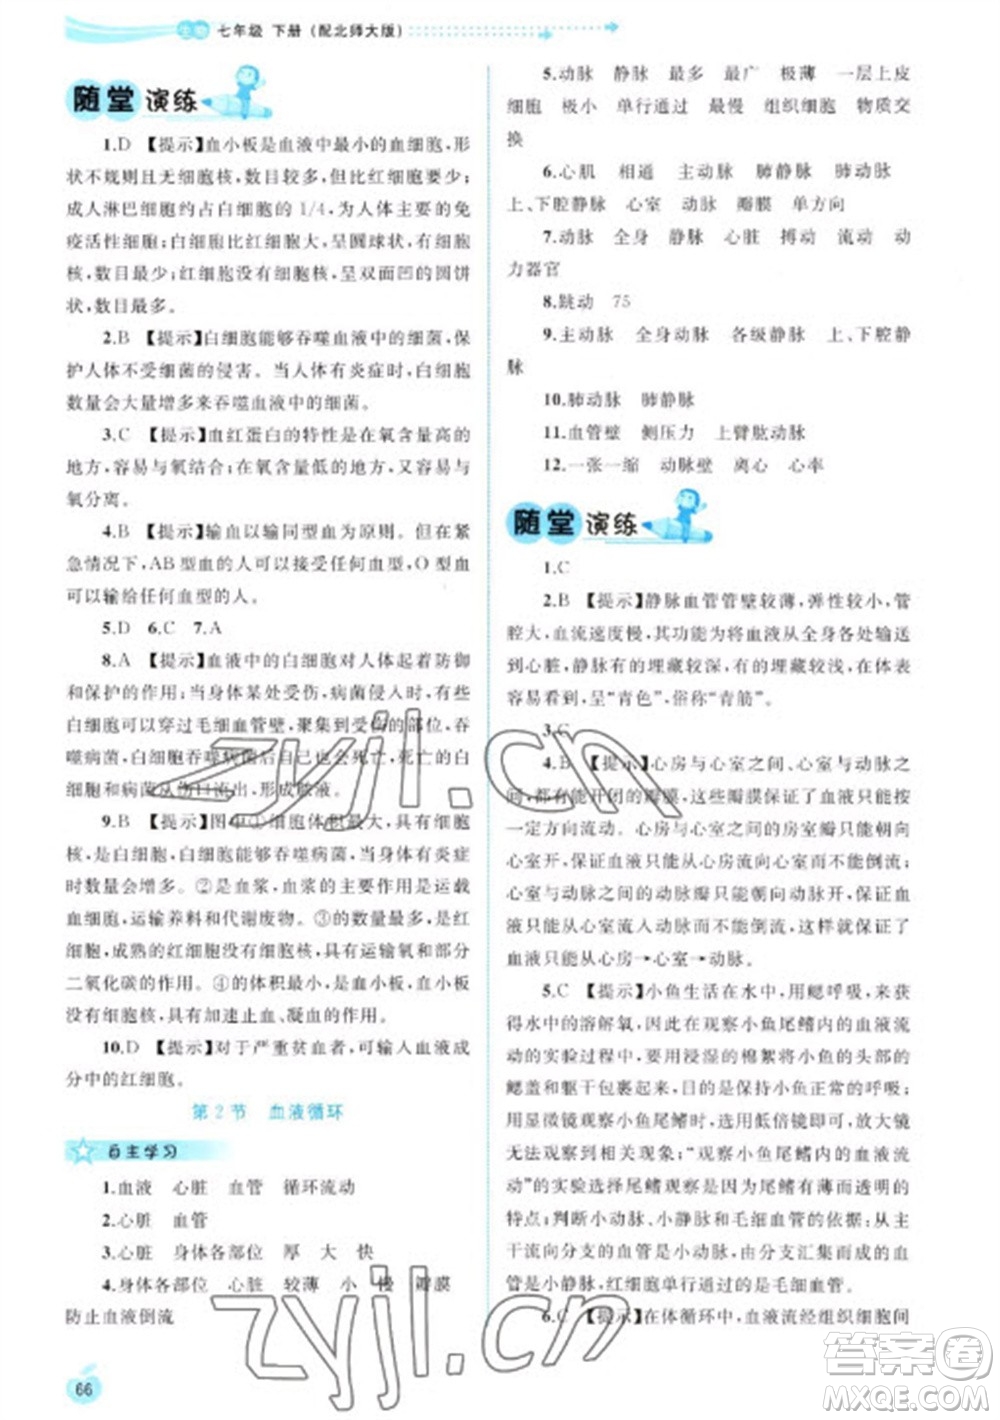 生物 七年级 下册（配北师大版）
随堂演练
1.D 【提示】血小板是血液中最小的血细胞,形
状不规则且无细胞核,数目较多,但比红细胞少;
成人淋巴细胞约占白细胞的1/4,为人体主要的免
疫活性细胞;白细胞比红细胞大,呈圆球状,有细胞
核,数目最少;红细胞没有细胞核,呈双面凹的圆饼
状,数目最多。
2.B 【提示】白细胞能够吞噬血液中的细菌,保
护人体不受细菌的侵害。当人体有炎症时,白细胞
数量会大量增多来吞噬血液中的细菌。
3.C 【提示】血红蛋白的特性是在氧含量高的
地方,容易与氧结合;在氧含量低的地方,容易与
氧分离。
4.B 【提示】输血以输同型血为原则。但在紧
急情况下,AB型血的人可以接受任何血型,O型血
可以输给任何血型的人。
5.D 6.C 7.A
8.A 【提示】血液中的白细胞对人体起着防御
和保护的作用;当身体某处受到伤害,病菌侵入时,
白细胞可以穿过毛细血管壁,聚集到受伤的部位,吞
噬病菌;白细胞吞噬病菌后自己也会死亡,死亡的白
细胞和病菌从伤口流出,形成脓液。
9.B 【提示】图中①细胞体积最大,具有细胞
核,是白细胞,白细胞有吞噬病菌的作用,有炎症
时数量会增多。②是血浆,血浆的主要作用是运载
血细胞,运输养料和代谢废物。③的数量最多,是红
细胞,成熟的红细胞没有细胞核,具有运输氧和部分
二氧化碳的作用。④的体积最小,是血小板,血小板
没有细胞核,具有加速止血、凝血的作用。
10.D 【提示】对于严重贫血者,可输入血液成
分中的红细胞。
第2节 血液循环
自主学习
1.血液 心脏 血管 循环流动
2.心脏 血管
3.心脏 身体各部位 厚 大 快
4.身体各部位 心脏 较薄 小 慢 瓣膜
防止血液倒流
5.动脉 静脉 最多 最广 极薄 一层上皮
细胞 极小 单行通过 最慢 组织细胞 物质交
换
6.心肌 相通 主动脉 肺静脉 肺动脉
上、下腔静脉 心室 动脉 瓣膜 单方向
7.动脉 全身 静脉 心脏 搏动 流动 动
力器官
8.跳动 75
9.主动脉 全身动脉 各级静脉 上、下腔静
脉
10.肺动脉 肺静脉
11.血管壁 侧压力 上臂肱动脉
12.一张一缩 动脉壁 离心 心率
随堂演练
1.C
2.B 【提示】静脉血管管壁较薄,弹性较小,管
腔大,血流速度慢,其功能为将血液从全身各处输送
到心脏,静脉有的埋藏较深,有的埋藏较浅,在体表
容易看到,呈“青色”,俗称“青筋”。
3.C
4.B 【提示】心房与心室之间、心室与动脉之
间,都有能开闭的瓣膜,这些瓣膜保证了血液只能按
一定方向流动。心房与心室之间的房室瓣只能朝向
心室开,保证血液只能从心房流向心室,而不能倒流;
心室与动脉之间的动脉瓣只能朝向动脉开,保证血
液只能从心室流入动脉而不能倒流。这样就保证了
血液只能从心房→心室→动脉。
5.C 【提示】小鱼生活在水中,用鳃呼吸,来获
得水中的溶解氧,因此在观察小鱼尾鳍内的血液流
动的实验过程中,要用浸湿的棉絮将小鱼的头部的
鳃盖和躯干包裹起来,目的是保持小鱼正常的呼吸;
用显微镜观察小鱼尾鳍时,要用低倍镜,用高倍镜
无法观察到相关现象;“观察小鱼尾鳍内的血液流动”
的实验选择尾鳍观察是因为尾鳍有薄而透明的
特点;判断小动脉,小静脉和毛细血管的依据:从主
干流向分支的血管是小动脉,由分支汇集而成的血管
是小静脉,红细胞单行通过的是毛细血管。
6.C 【提示】在体循环中,血液流经组织细胞间
66
zyjl.cn
zyjl.cn
答案圈
MXQE.COM